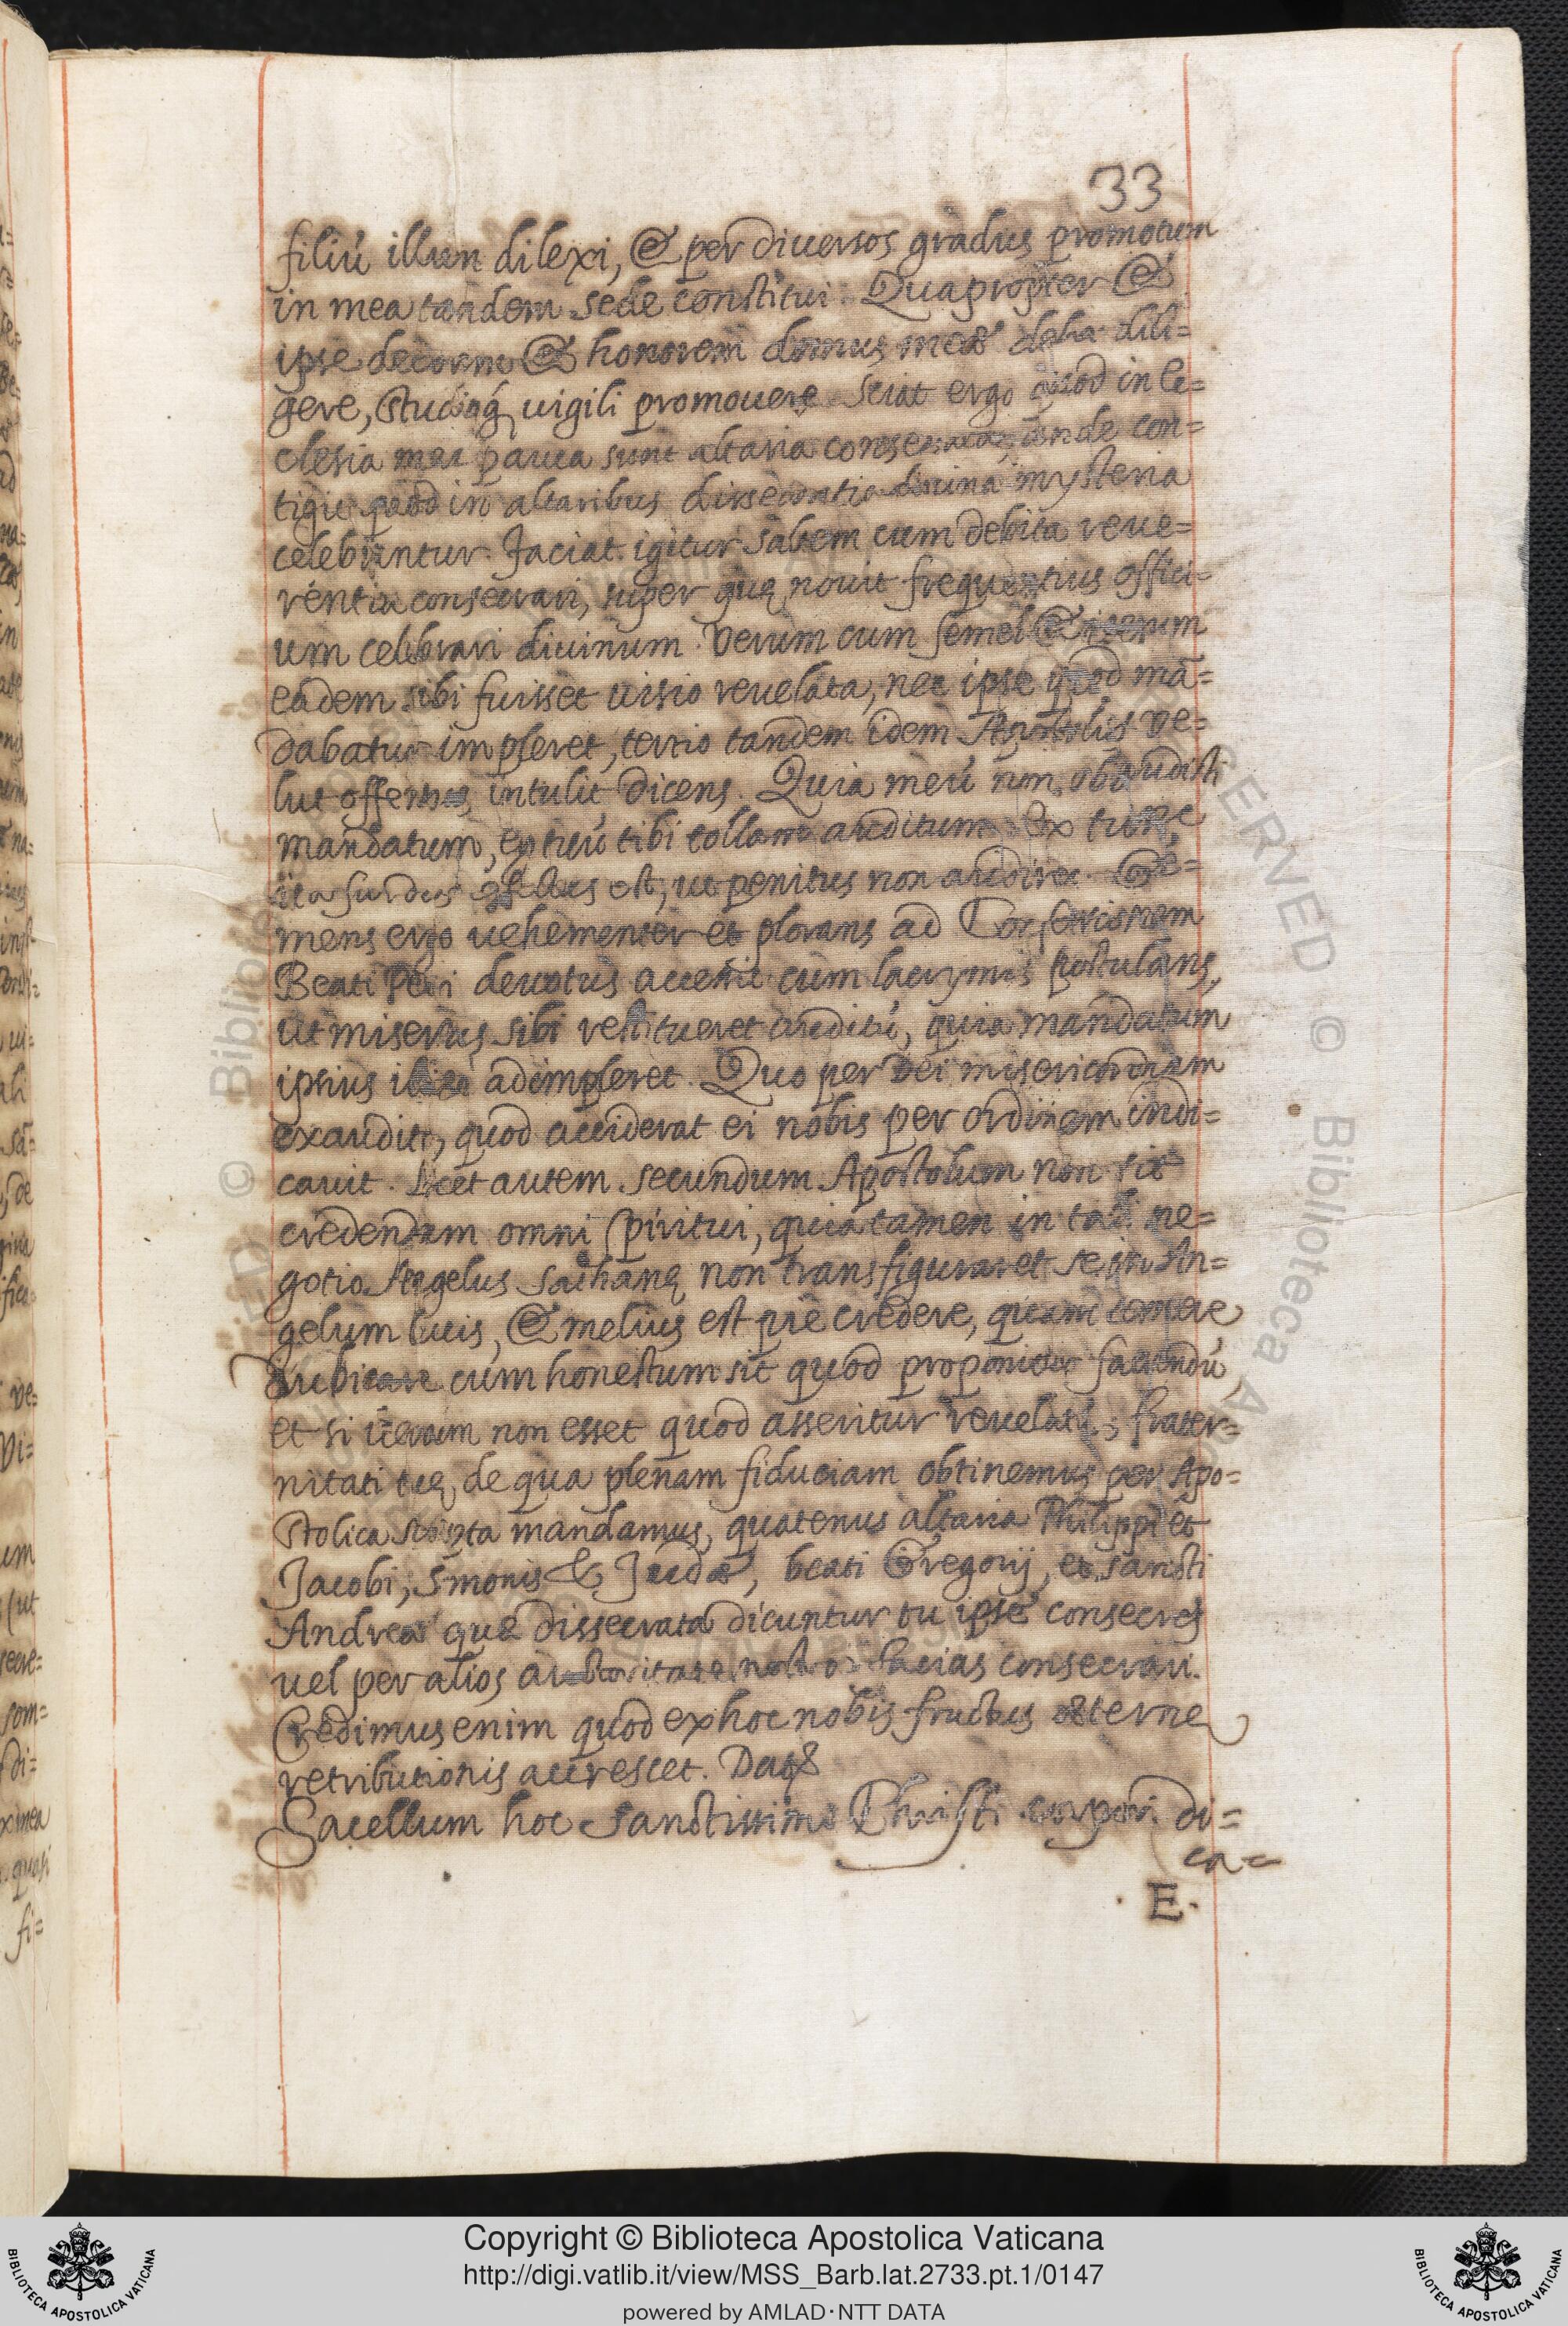 33
filiú illum dilexi, & per diuersos gradus promotum
in mea tandem sede constitui. Quapropter &
ipse decorem & honorem domus meæ debet dili=
gere, studioq́ uigili promouere. Sciat ergo quod in Ec=
clesia mea pauca sunt altaria consecrata, unde con=
tigit quod in altaribus dissecratis diuina mysteria
celebrantur. Faciat igitur saltem cum debita reue=
rentia consecrari, super quę nouit frequentius offici=
um celebrari diuinum. Verum cum semel & iterum
eadem sibi fuisset uisio reuelata, nec ipse quod mā=
dabatur impleret, tertio tandem idem Apostolus ve=
lut offensus intulit dicens. Quia meú non obaudisti
mandatum, et tuú tibi tollam auditum. Ex tunc
ita surdus effectus est, ut penitus non audiret. Ge=
mens ergo uehementer et plorans ad Confessionem
Beati Petri deuotus accessit cum lacrymis postulans,
ut misertus sibi restitueret auditú, quia mandatum
ipsius adimpleret. Quo per Dei misericordiam
exaudito, quod acciderat ei nobis per ordinem indi=
cauit. Licet autem secundum Apostolum non sit
credendum omni spiritui, quia tamen in tali ne=
gotio Angelus Sathanę non transfiguraret se in An=
gelum lucis, & melius est pie credere, quam temere
dubitare cum honestum sit quod proponitur faciendú,
et si uerum non esset quod asseritur reuelatú; frater=
nitati tuę, de qua plenam fiduciam obtinemus per Apo=
stolica scripta mandamus, quatenus altaria Philippi et
Jacobi, Simonis & Judæ, beati Gregorij, et sancti
Andreæ quæ dissecrata dicuntur tu ipse consecres
uel per alios auctoritate nostra facias consecrari.
Credimus enim quod ex hoc nobis fructus æterne
retributionis accrescet. Dat&
Sacellum hoc sanctissimo Christi corpori di=
ca=
.E.
Copyright © Biblioteca Apostolica Vaticana
http://digi.vatlib.it/view/MSS_Barb.lat.2733.pt.1/0147
powered by AMLAD·NTT DATA
BIBLIOTECA APOSTOLICA VATICANA
BIBLIOTECA APOSTOLICA VATICANA